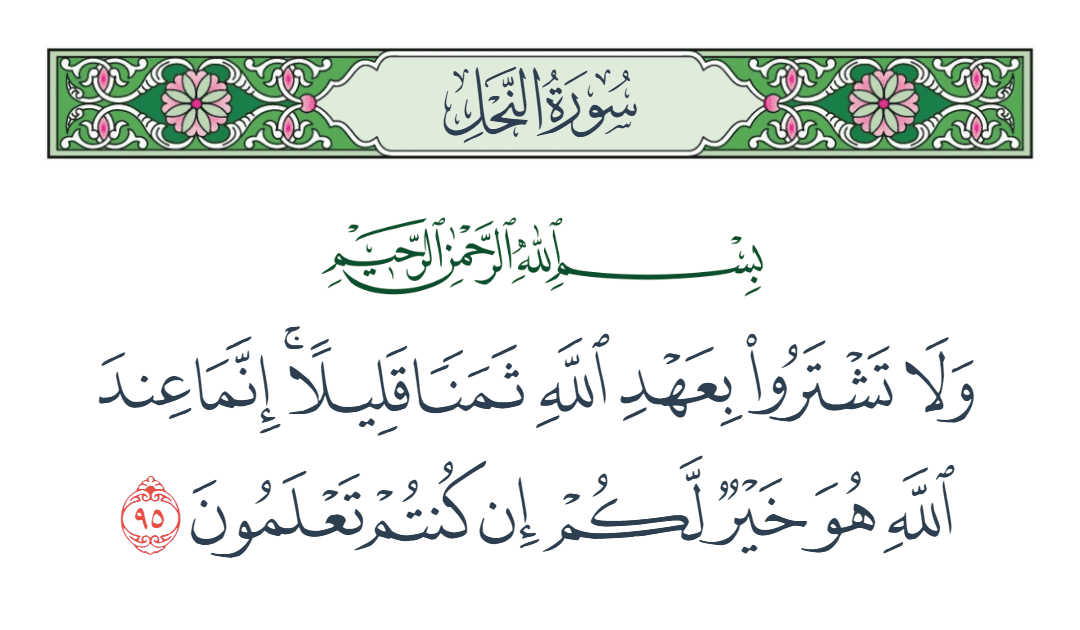 سُورَةُ النَّحْلِ
بِسْمِ ٱللَّهِ ٱلرَّحْمَٰنِ ٱلرَّحِيمِ
وَلَا تَشْتَرُوا۟ بِعَهْدِ ٱللَّهِ ثَمَنًا قَلِيلًا ۚ إِنَّمَا عِندَ
ٱللَّهِ هُوَ خَيْرٌ لَّكُمْ إِن كُنتُمْ تَعْلَمُونَ ٩٥